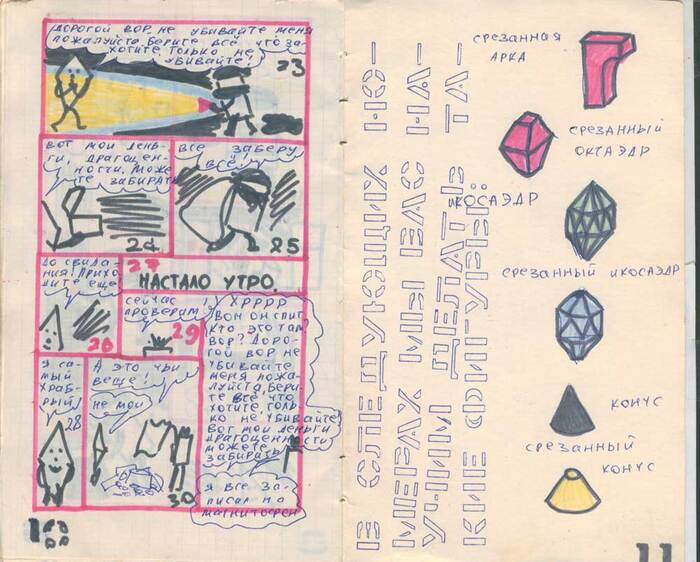 ДОРОГОЙ ВОР НЕ УБИВАЙТЕ МЕНЯ
ПОЖАЛУЙСТА.БЕРИТЕ ВСЁ ЧТО ЗА-
ХОТИТЕ ТОЛЬКО НЕ
УБИВАЙТЕ!
23
ВОТ МОИ ДЕНЬ-
ГИ, ДРАГОЦЕН-
НОСТИ. МОЖЕ
ТЕ ЗАБИРАТЬ
24
ВСЕ ЗАБЕРУ
ВСЁ!
25
ДО СВИДА-
НИЯ! ПРИХО-
ДИТЕ ЕЩЕ.
26
27
НАСТАЛО УТРО.
Я СА-
МЫЙ
ХРАБ-
РЫЙ!
28
СЕЙЧАС
ПРОВЕРИМ
29
ХРРРР
ВОН ОН СПИТ
КТО ЭТО ТАМ
ВОР? ДОРО-
ГОЙ ВОР НЕ
УБИВАЙТЕ
МЕНЯ ПОЖА-
ЛУЙСТА,БЕРИ-
ТЕ ВСЕ ЧТО
ХОТИТЕ, ТОЛЬ
КО НЕ УБИВАЙТЕ
ВОТ МОИ ДЕНЬГИ
ДРАГОЦЕННОСТИ
МОЖЕТЕ
ЗАБИРАТЬ
Я ВСЕ ЗА-
ПИСАЛ НА
МАГНИТОФОН
А ЭТО ЧЬИ
ВЕЩЕ!
НЕ МОИ
30
10
В СЛЕДУЮЩИХ НО-
МЕРАХ МЫ ВАС НА-
УЧИМ ДЕЛАТЬ ТА-
КИЕ ФИГУРЫ:
СРЕЗАННАЯ
АРКА
СРЕЗАННЫЙ
ОКТАЭДР
ИКОСАЭДР
СРЕЗАННЫЙ ИКОСАЭДР
КОНУС
СРЕЗАННЫЙ
КОНУС
11